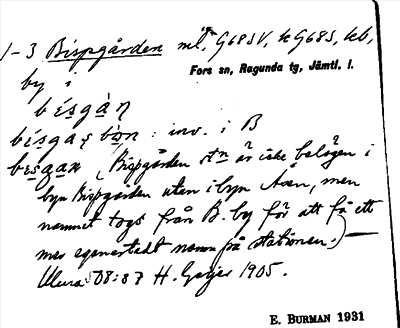 1-3 Bispgården ml, G68SV, k G68S, kb,
Fors sn, Ragunda tg, Jämtl. l.
by i
bésgàn
: inv. i B
(Bispgården stn är icke belägen i
byn Bispgården utan i byn Åsen, men
namnet togs från B. by för att få ett
mer egenartadt namn på stationen.)
08:87 H. Geijer 1905.
E. BURMAN 1931